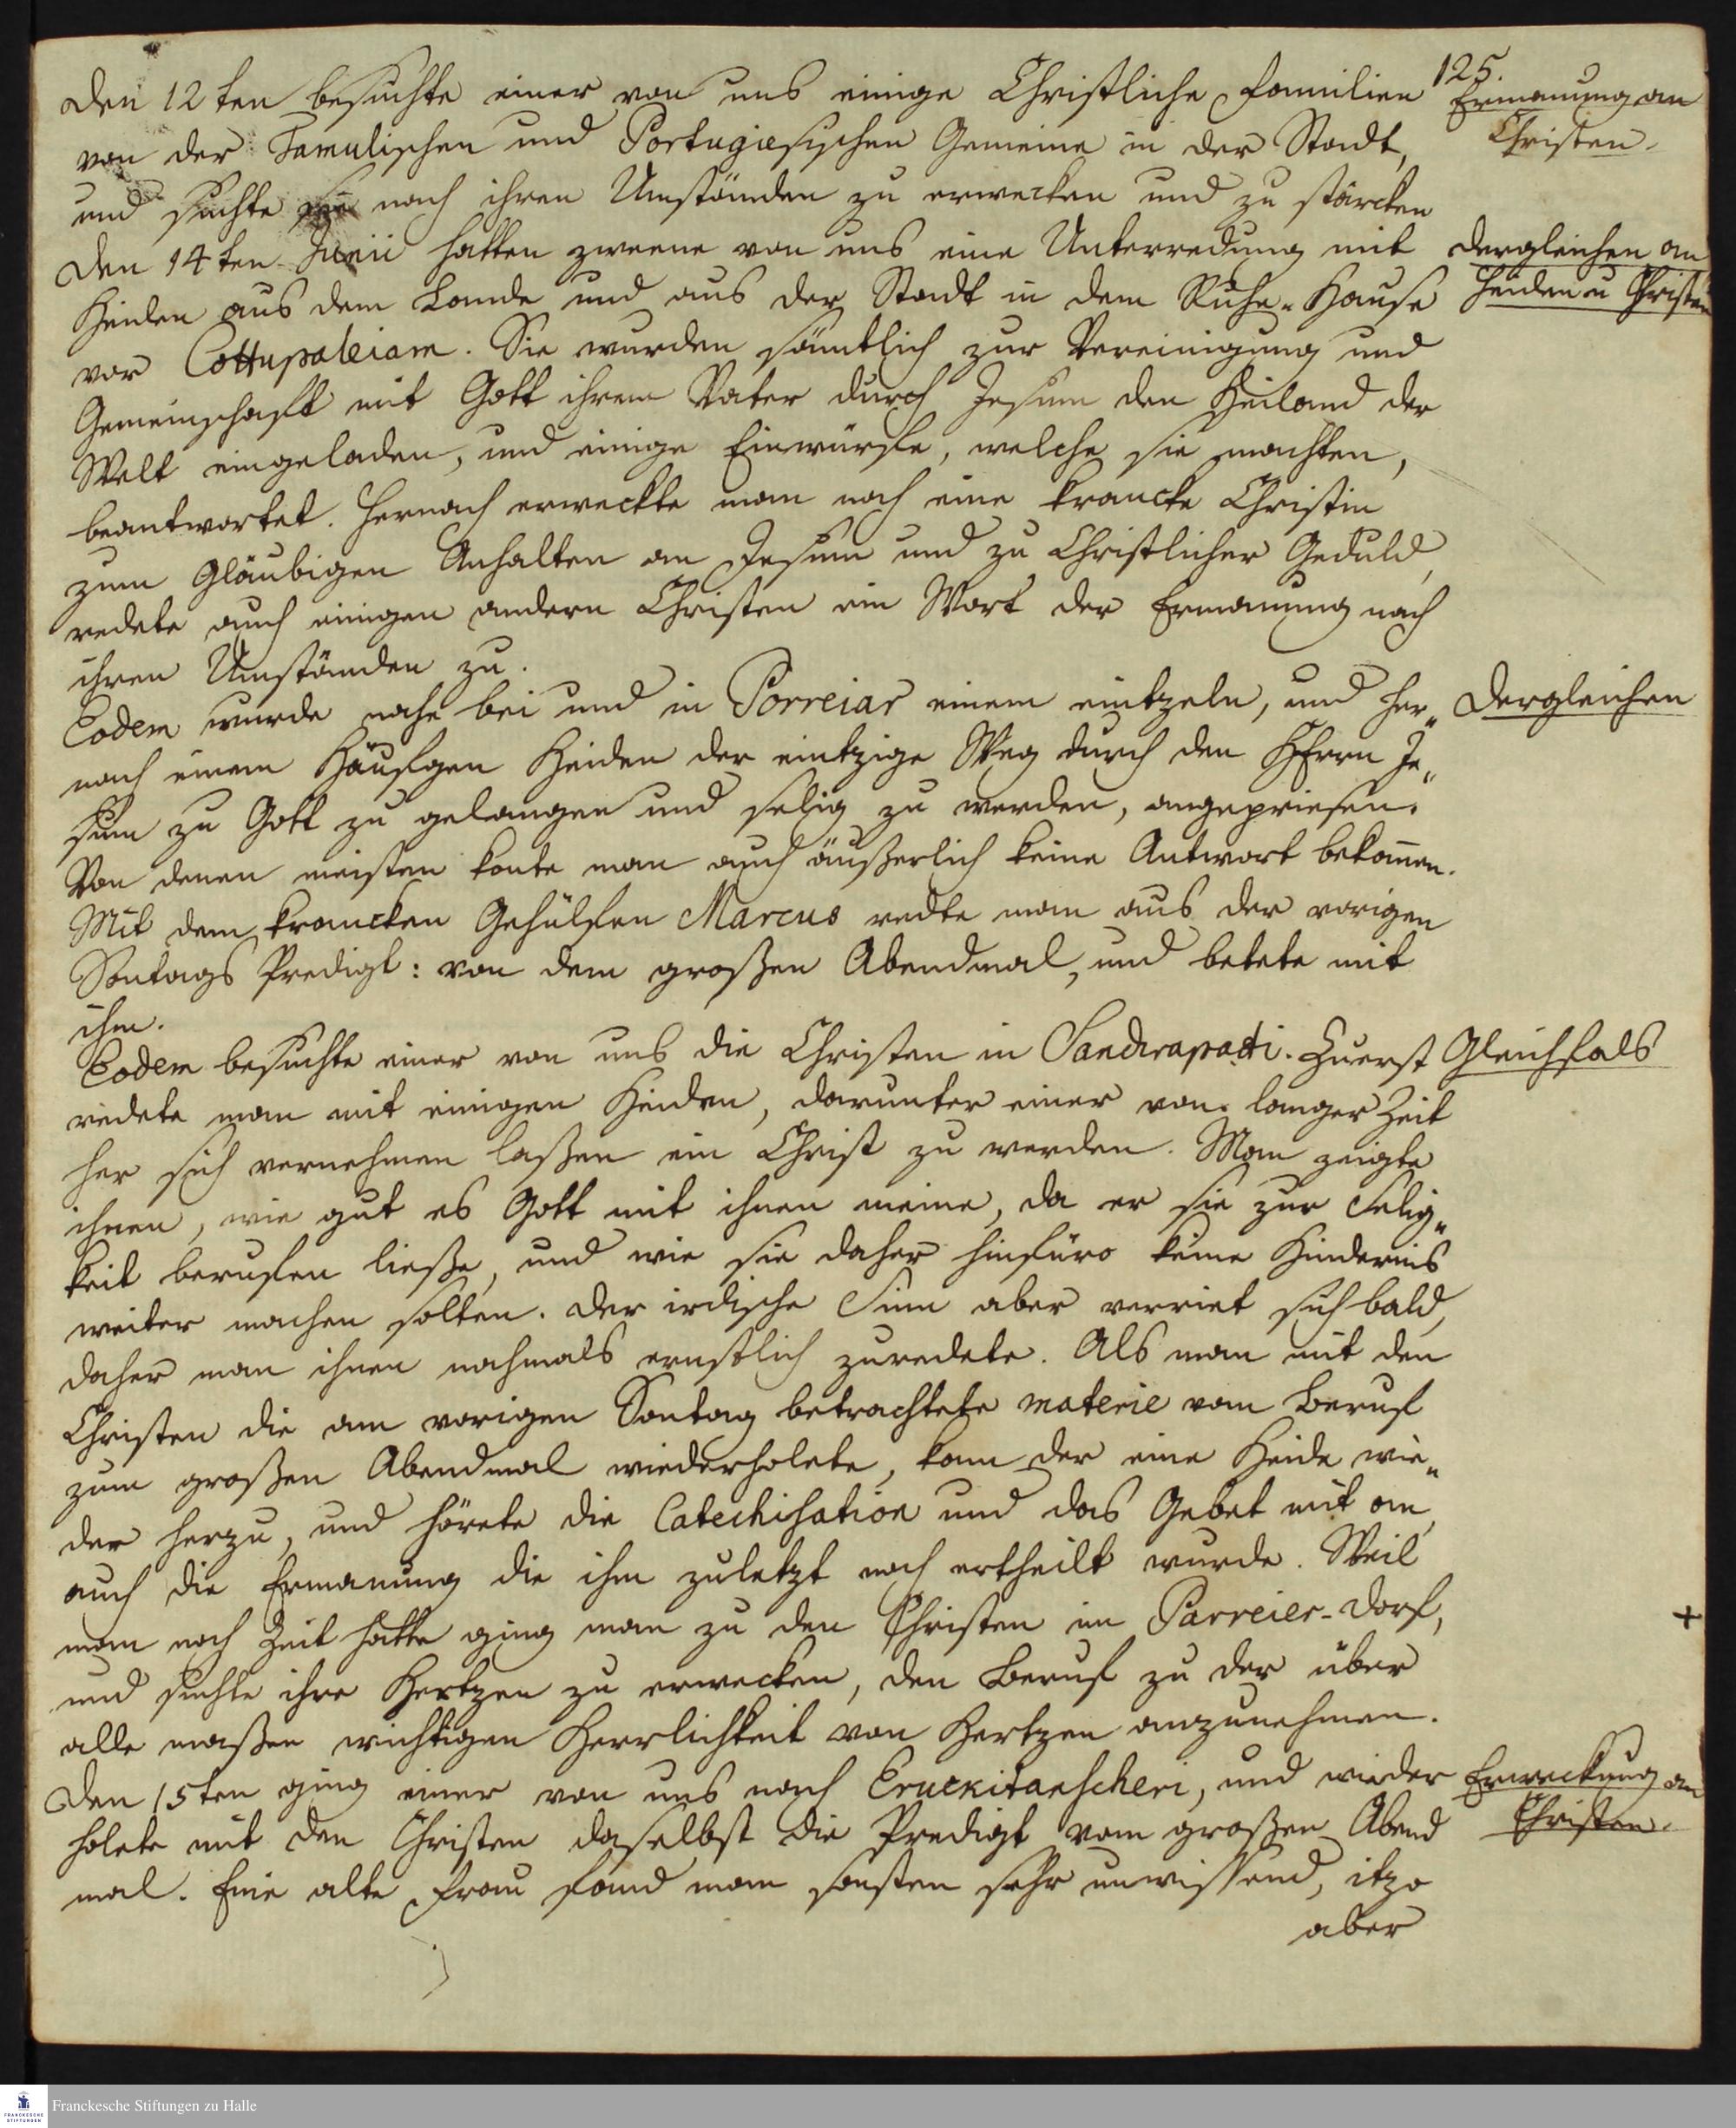 125.
Den 12ten besuchte einer von uns einige Christliche Familien
Ermanung an
Christen.
von der Tamulischen und Portugiesischen Gemeine in der Stadt,
und suchte sie nach ihren Umständen zu erwecken und zu stärcken
Den 14ten Junii hatten zweene von uns eine Unterredung mit
dergleichen an
Heiden u Christen
Heiden aus dem Lande und aus der Stadt in dem Ruhe-Hause
vor Cottupaleiam. Sie wurden sämtlich zur Vereinigung und
Gemeinschaft mit Gott ihrem Vater durch Jesum den Heiland der
Welt eingeladen, und einige Einwürfe, welche sie machten,
beantwortet. Hernach erweckte man noch eine krancke Christin
zum Gläubigen Anhalten an Jesum und zu Christlicher Geduld,
redete auch einigen andern Christen ein Wort der Ermanung nach
ihren Umständen zu.
Eodem wurde nahe bei und in Porreiar einem eintzeln, und her„
Dergleichen
nach einem Häufgen Heiden der eintzige Weg durch den HErrn Je„
sum zu Gott zu gelangen und selig zu werden, angepriesen.
Von denen meisten konte man auch äußerlich keine Antwort bekom̄en.
Mit dem krancken Gehülfen Marcus redte man aus der vorigen
Sontags Predigt: von dem großen Abendmal, und betete mit
ihm.
Eodem besuchte einer von uns die Christen in Sandirapadi. Zuerst
Gleichfals
redete man mit einigen Heiden, darunter einer von langer Zeit
her sich vernehmen laßen ein Christ zu werden. Man zeigte
ihnen, wie gut es Gott mit ihnen meine, da er sie zur Selig„
keit berufen ließe, und wie sie daher hinfüro keine Hindernis
weiter machen solten. Der irdische Sinn aber verriet sich bald,
daher man ihnen nochmals ernstlich zuredete. Als man mit den
Christen die am vorigen Sontag betrachtete materie vom Beruf
zum großen Abendmal wiederholete, kam der eine Heide wie„
der herzu, und hörete die Catechisation und das Gebet mit an,
auch die Ermanung die ihm zuletzt noch ertheilt wurde. Weil
man noch Zeit hatte ging man zu den Christen im Parreier-Dorf,
+
und suchte ihre Hertzen zu erwecken, den Beruf zu der über
alle maßen wichtigen Herrlichkeit von Hertzen anzunehmen.
Den 15ten ging einer von uns nach Eruckitanscheri, und wieder
Erweckung an
Christen.
holete mit den Christen daselbst die Predigt vom großen Abend
mal. Eine alte Frau fand man sonsten sehr unwissend, itzo
aber
FRANCKESCHE STIFTUNGEN
Franckesche Stiftungen zu Halle